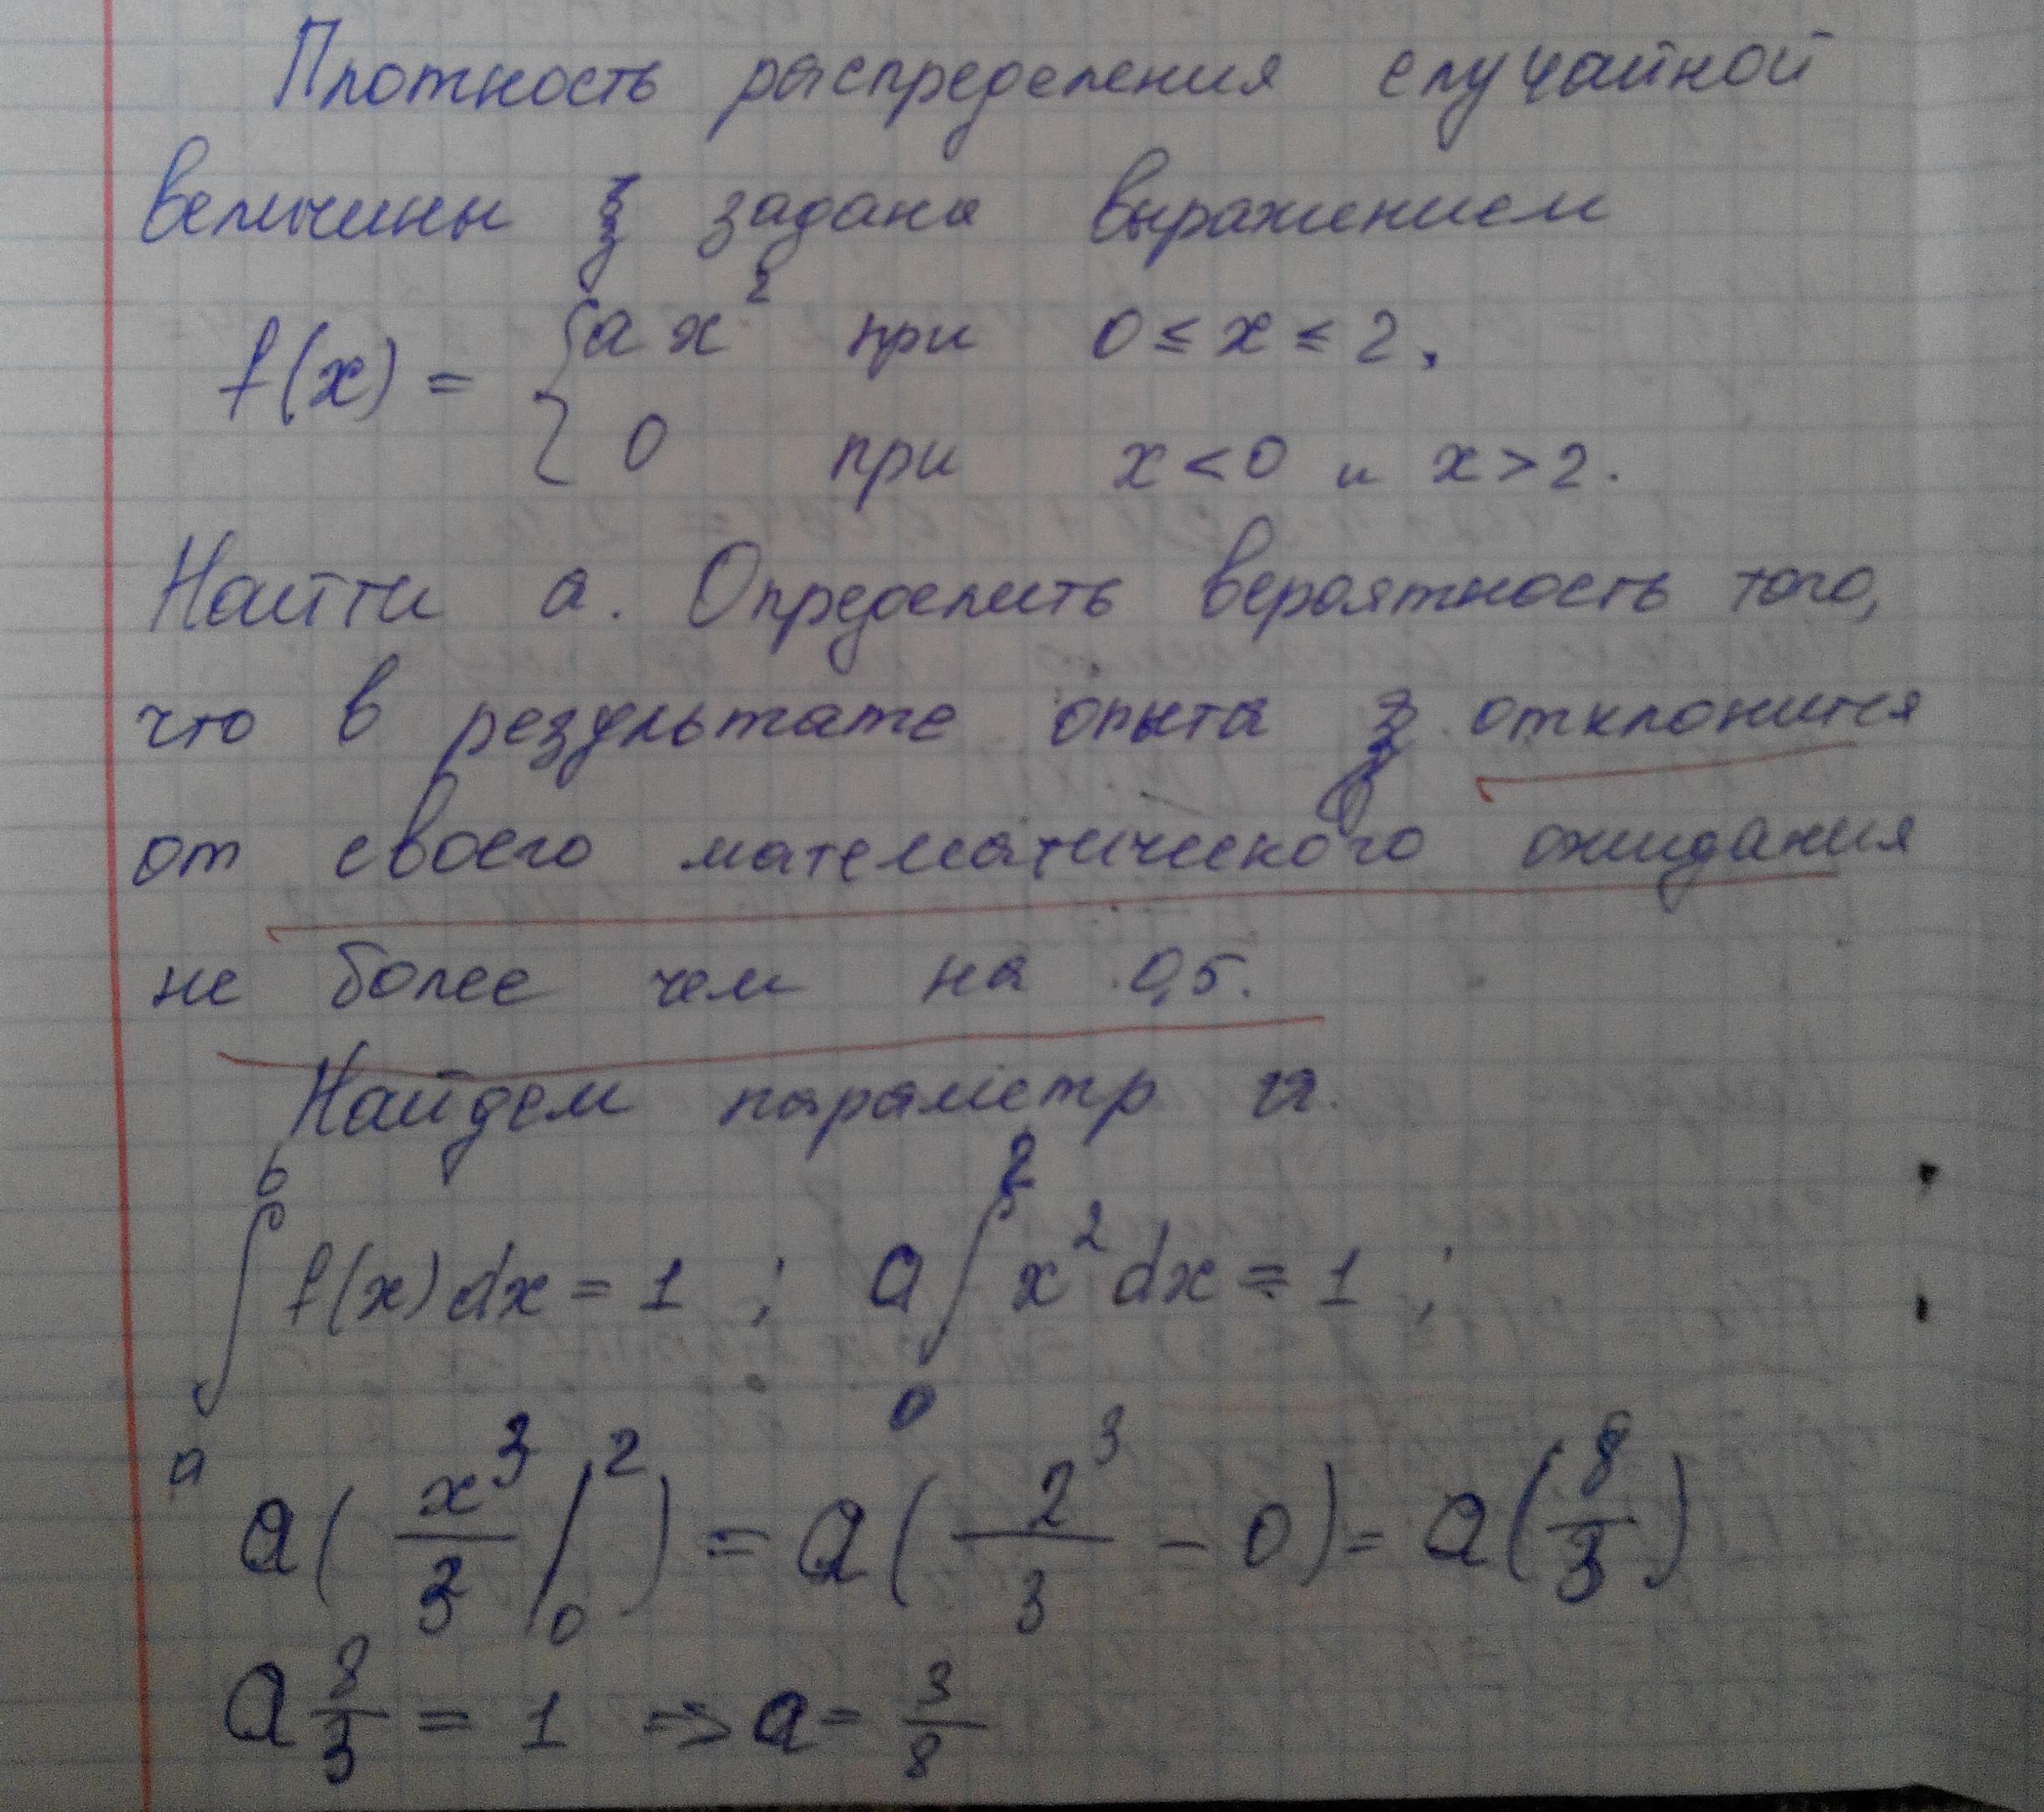 Плотность распределения случайной
величины ξ задана выражением
f(x) = { ax² при 0 ≤ x ≤ 2,
0 при x < 0 и x > 2.
Найти a. Определить вероятность того,
что в результате опыта ξ отклонится
от своего математического ожидания
не более чем на 0,5.
Найдем параметр a.
∫ₐᵇ f(x) dx = 1 ; a ∫₀² x² dx = 1 ;
a ( x³/3 |₀² ) = a ( 2³/3 - 0 ) = a ( 8/3 )
a 8/3 = 1 => a = 3/8